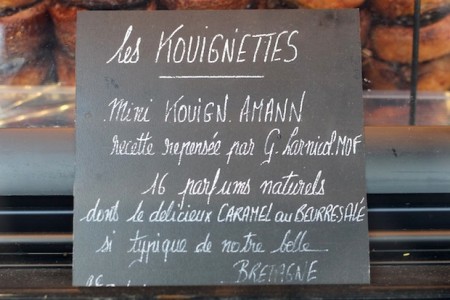 les KOUIGNETTES
Mini KOUIGN. AMANN
recette repensée par G. Larnicol. MOF
16 parfums naturels
dont le délicieux CARAMEL au BEURRE SALÉ
si typique de notre belle
BRETAGNE